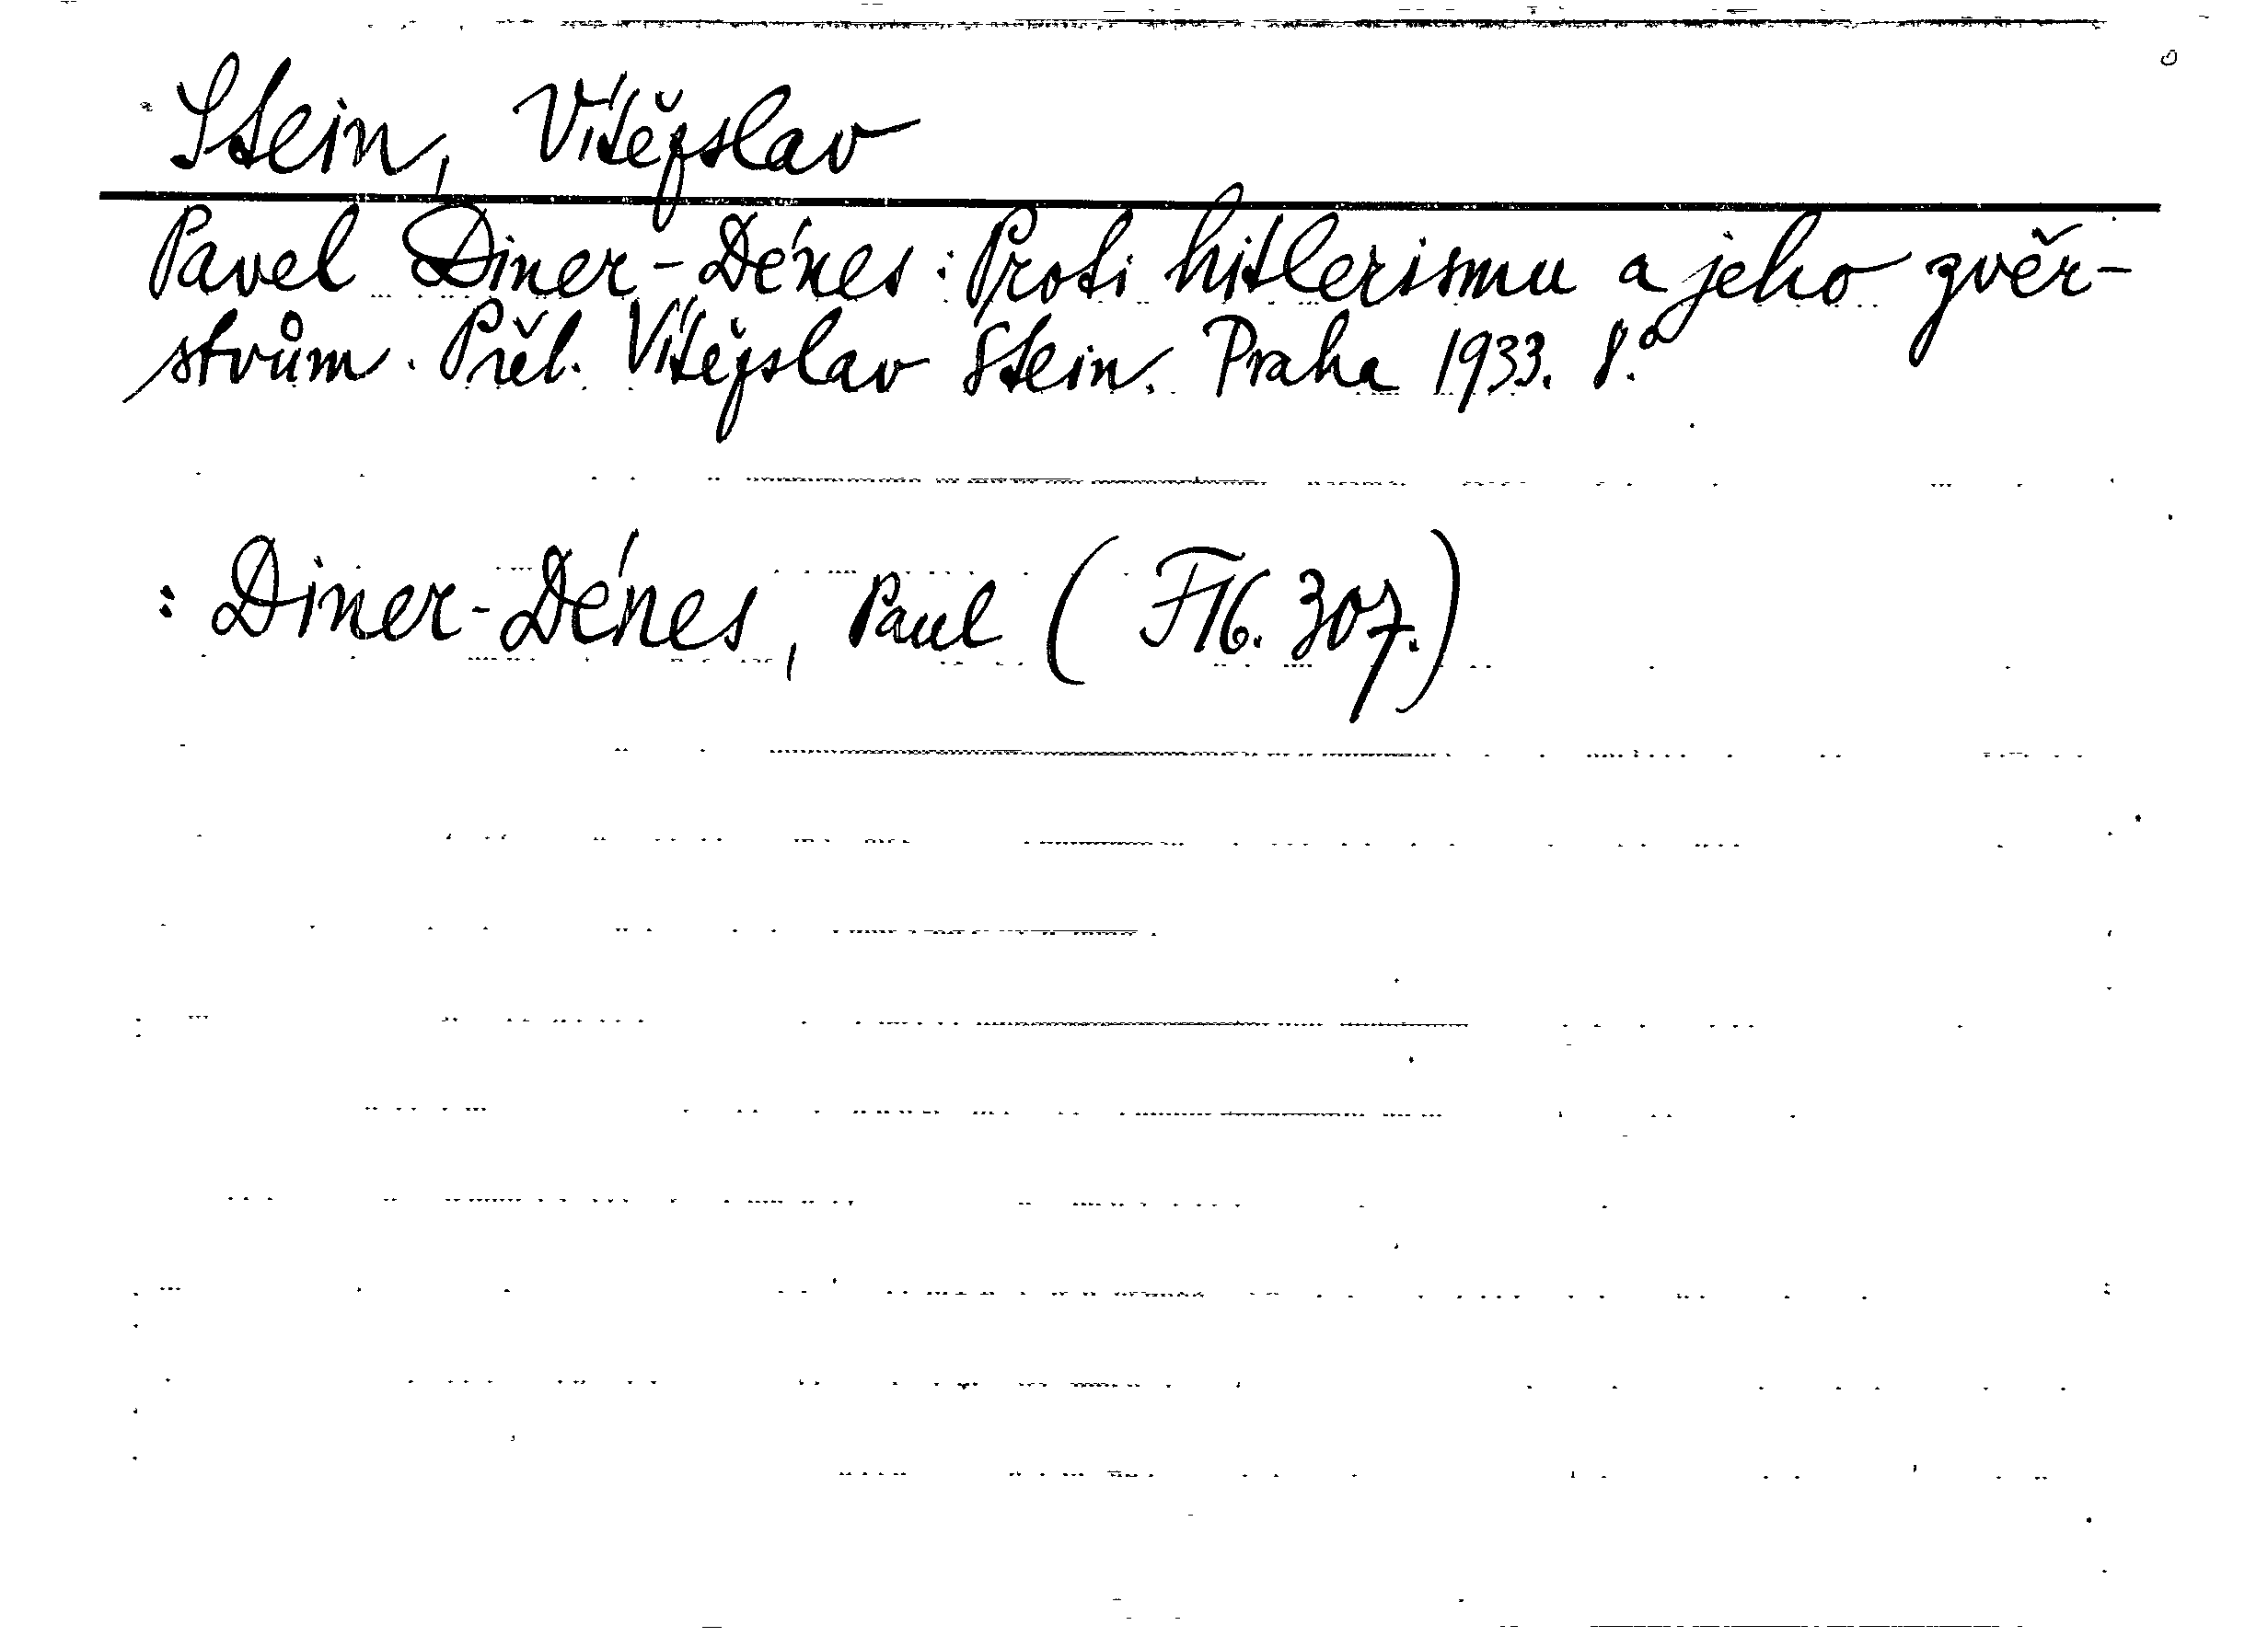 Stein, Vítězslav
Pavel Diner-Dénes: Proti hitlerismu a jeho zvěr-
stvům. Přel. Vítězslav Stein. Praha 1933. 8.°
: Diner-Dénes, Paul ( F16. 307.)